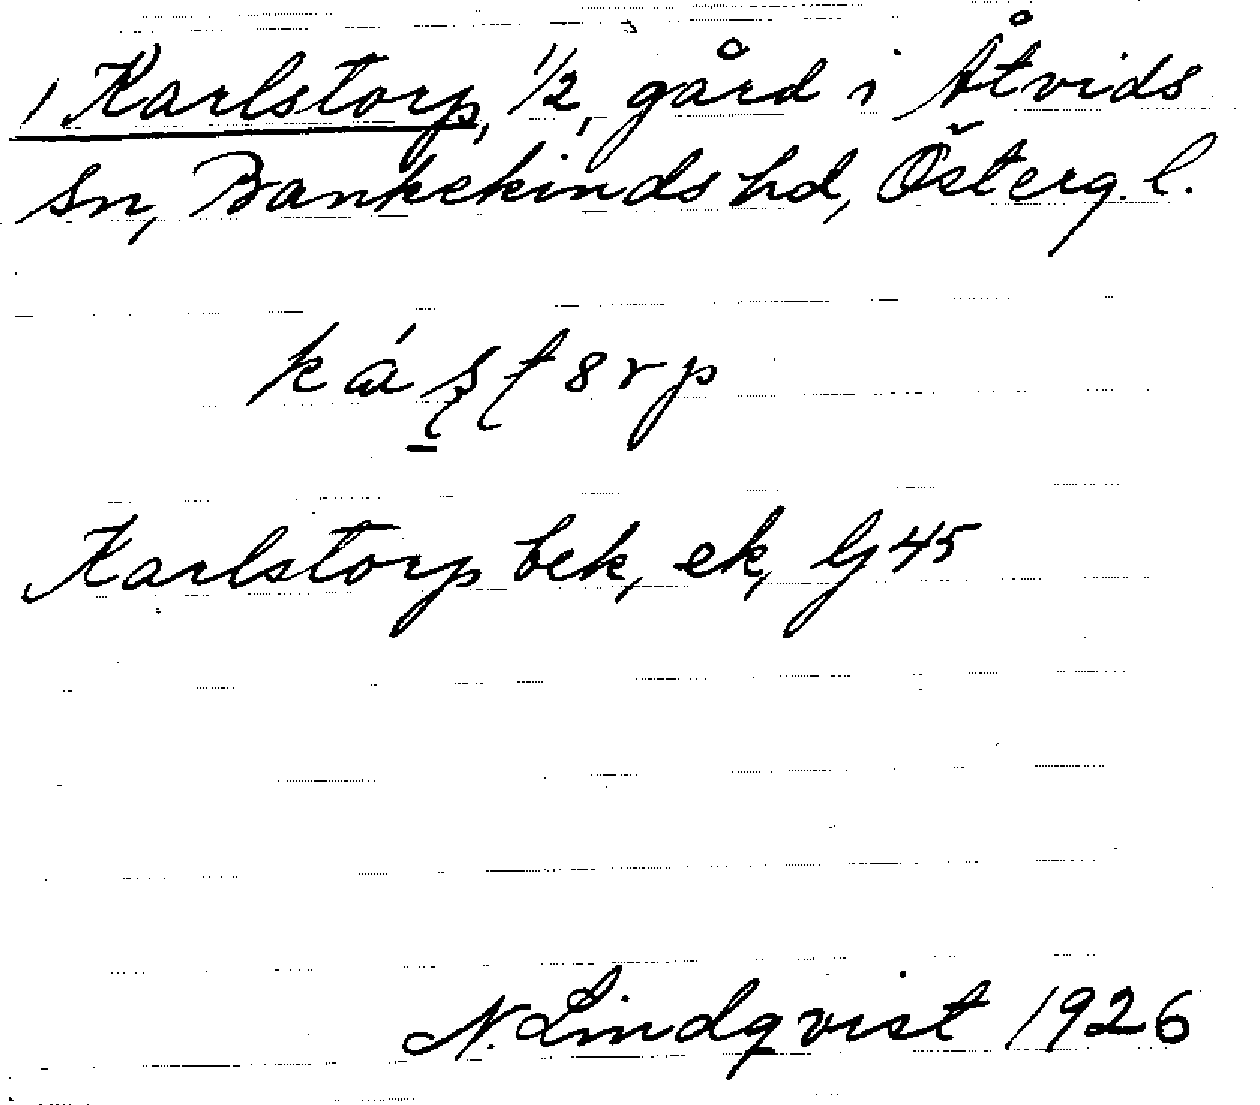 1 Karlstorp, 1/2, gård i Åtvids
sn, Bankekinds hd, Österg. l.
ká ş̱ƭ8rp
Karlstorp bek, ek, lj 45
N. Lindqvist 1926